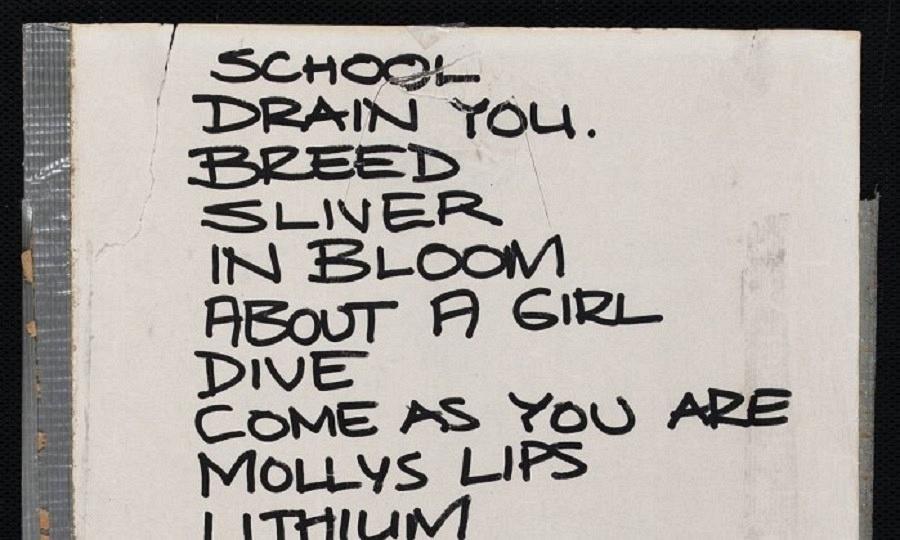 SCHOOL
DRAIN YOU.
BREED
SLIVER
IN BLOOM
ABOUT A GIRL
DIVE
COME AS YOU ARE
MOLLYS LIPS
LITHIUM